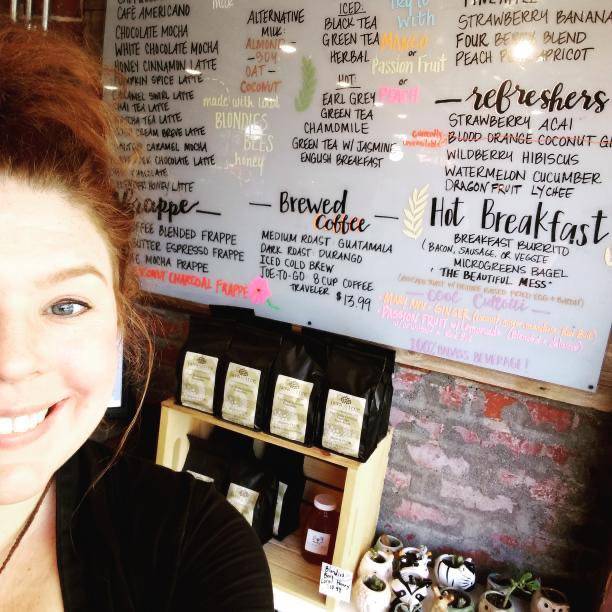 CAFÉ AMERICANO
CHOCOLATE MOCHA
WHITE CHOCOLATE MOCHA
HONEY CINNAMON LATTE
PUMPKIN SPICE LATTE
CARAMEL SWIRL LATTE
CHAI TEA LATTE
MATCHA TEA LATTE
CREAM BREVE LATTE
CARAMEL MOCHA
CHOCOLATE LATTE
HONEY LATTE
milk
ALTERNATIVE
MILK:
ALMOND
SOY
OAT
COCONUT
made with local
BLONDIES
BEES
honey
ICED:
BLACK TEA
GREEN TEA
HERBAL
HOT:
EARL GREY
GREEN TEA
CHAMOMILE
GREEN TEA W/ JASMINE
ENGLISH BREAKFAST
Try it
with
MANGO
or
Passion Fruit
or
PEACH
STRAWBERRY BANANA
FOUR BERRY BLEND
PEACH APRICOT
refreshers
STRAWBERRY ACAI
currently
unavailable
BLOOD ORANGE COCONUT
WILDBERRY HIBISCUS
WATERMELON CUCUMBER
DRAGON FRUIT LYCHEE
Frappe
COFFEE BLENDED FRAPPE
BUTTER ESPRESSO FRAPPE
MOCHA FRAPPE
COCONUT CHARCOAL FRAPPE
Brewed
Coffee
MEDIUM ROAST GUATAMALA
DARK ROAST DURANGO
ICED COLD BREW
JOE-TO-GO 8 CUP COFFEE
TRAVELER $13.99
Hot Breakfast
BREAKFAST BURRITO
(BACON, SAUSAGE, OR VEGGIE
MICROGREENS BAGEL
"THE BEAUTIFUL MESS"
PASSION FRUIT w/ Lemonade
BADASS BEVERAGE!
Blondies
Bees
Local Honey